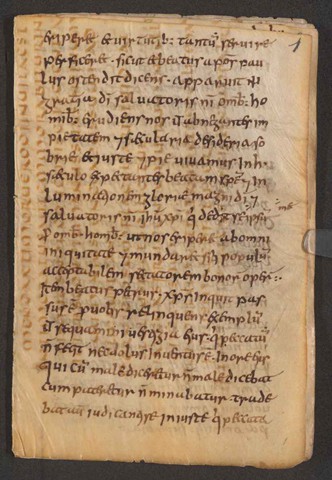 eripere et virtutib: tantu servire 1
perficeret. sicut et beatus apos pau
lus ostendit dicens. apparuit
gratia di salvatoris nri omib: ho
mib: erudiens nos ut abnegantes im
pietatem et sæcularia desideria so
brie et iuste et pie vivamus in h
sæculo expectantes beatam spē et in
luminationem glorie magni di et
salvatoris nri ihu xpi q dedit semetipsu
p omib: homib: ut nos eriperet ab omni
iniquitate et mundaret sibi populu
acceptabilem sectatorem bonor oper.
Item beatus petrus. xps inquit pas
sus ē p vobis relinquens exemplu
ut sequamini vestigia eius. q peccatu
n fecit nec dolus inventus ē in ore eius
qui cu malediceretur n maledicebat
cum pateretur n minabatur trade
bat aut iudicanti se iniuste q peccata